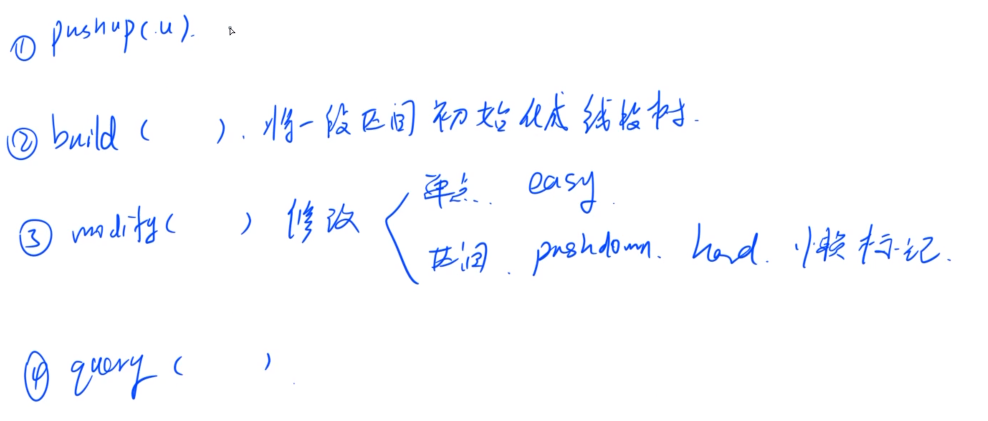 ① pushup(u).
② build ( ). 将一段区间初始化成线段树.
③ modify( ) 修改
单点. easy.
区间. pushdown. hard. 懒标记.
④ query ( ).